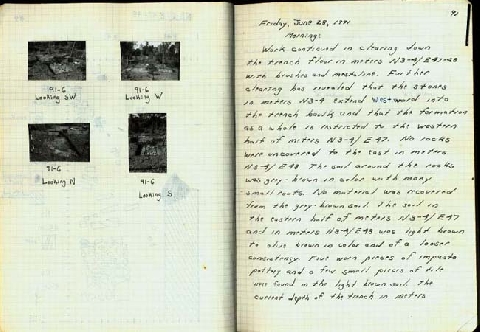 91-6
Looking SW
91-6
Looking W
91-6
Looking N
91-6
Looking S
Friday, June 28, 1991
Morning:
Work continued in clearing down
the trench floor in meters N3-4/
with brushes and Further
clearing has revealed that the stones
in meters N3-4 extend westward into
the trench baulk and that the formation
as a whole is restricted to the western
half of meters N3-4/E47. No rocks
were encountered to the east in meters
N3-4/E48. The soil around the rocks
was grey-brown in color with many
small rocks. No material was recovered
from the grey-brown soil. The soil in
the eastern half of meters N3-4/E47
and in meters N3-4/E48 was light brown
to olive brown in color and of a looser
consistency. Four worn pieces of impasto
pottery and a few small pieces of tile
were found in the light brown soil. The
current depth of the trench in meters